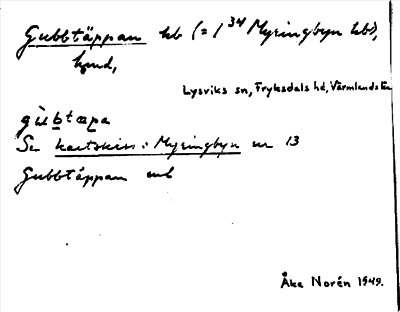 Gubbtäppan hb (= 1³⁴ Myringbyn hbs),
hmd,
Lysviks sn, Fryksdals hd, Värmlands län
gùbtæpa
Se kartskiss: Myringbyn nr 13
Gubbtäppan enl
Åke Norén 1949.